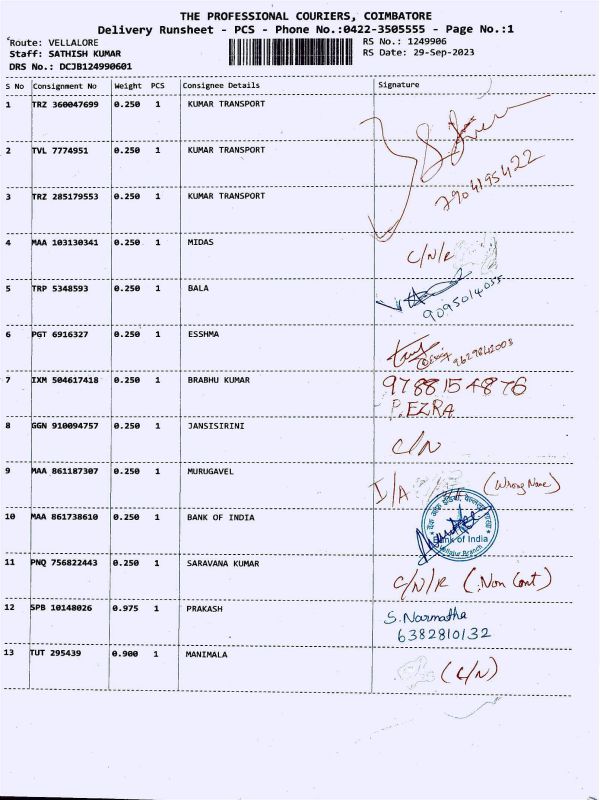 THE PROFESSIONAL COURIERS, COIMBATORE
Delivery Runsheet - PCS - Phone No.:0422-3505555 - Page No.:1
Route: VELLALORE
Staff: SATHISH KUMAR
DRS No.: DCJB124990601
RS No.: 1249906
RS Date: 29-Sep-2023
S No Consignment No Weight PCS Consignee Details Signature
1 TRZ 360047699 0.250 1 KUMAR TRANSPORT
2 TVL 7774951 0.250 1 KUMAR TRANSPORT
7904195422
3 TRZ 285179553 0.250 1 KUMAR TRANSPORT
4 MAA 103130341 0.250 1 MIDAS C/N/R
5 TRP 5348593 0.250 1 BALA
9095014055
6 PGT 6916327 0.250 1 ESSHMA
7 IXM 504617418 0.250 1 BRABHU KUMAR 9788154876
P.EZRA
8 GGN 910094757 0.250 1 JANSISIRINI C/N
9 MAA 861187307 0.250 1 MURUGAVEL I/A (Wrong Name)
10 MAA 861738610 0.250 1 BANK OF INDIA
Bank of India
11 PNQ 756822443 0.250 1 SARAVANA KUMAR C/N/R (Non Cont)
12 SPB 10148026 0.975 1 PRAKASH S. Narmatha
6382810132
13 TUT 295439 0.900 1 MANIMALA (C/N)